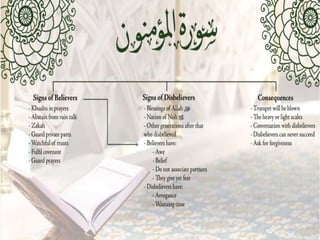 سورة المؤمنون
Signs of Believers
- Khushu in prayers
- Abstain from vain talk
- Zakah
- Guard private parts
- Watchful of trusts
- Fulfil covenant
- Guard prayers
Signs of Disbelievers
- Blessings of Allah ﷻ
- Nation of Nuh
- Other generations after that
who disbelieved
- Believers have:
- Awe
- Belief
- Do not associate partners
- They give yet fear
- Disbelievers have:
- Arrogance
- Wasting time
Consequences
- Trumpet will be blown
- The heavy or light scales
- Conversation with disbelievers
- Disbelievers can never succeed
- Ask for forgiveness